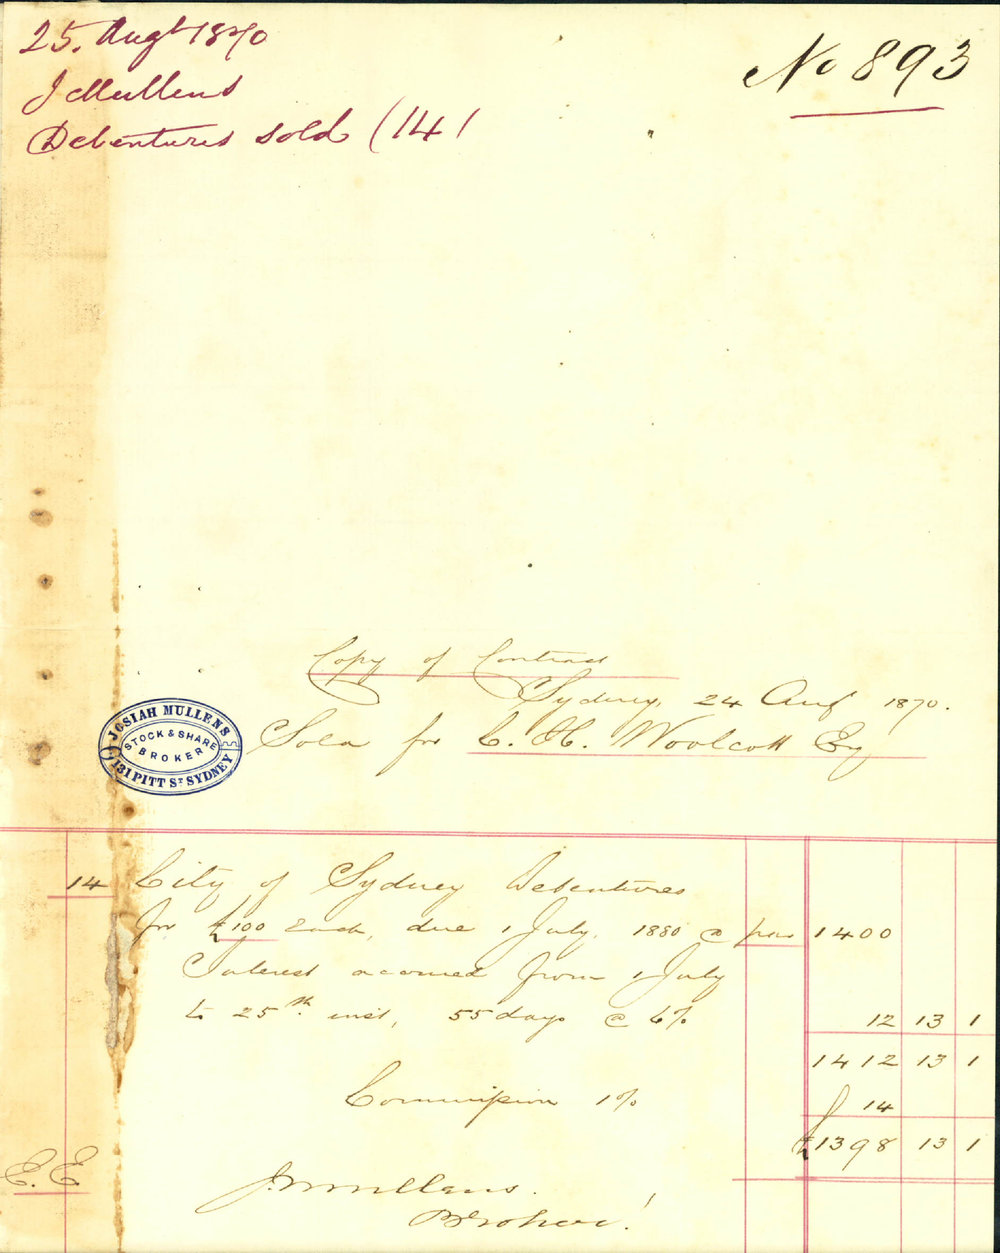 25. Augt 1870
J Mullens
Debentures sold (14)
No 893
Copy of Contract
Sydney, 24 Aug 1870.
Sold for C. H. Woolcott Esq
JOSIAH MULLENS
STOCK & SHARE
BROKER
131 PITT ST SYDNEY
14 City of Sydney Debentures
for £100 Each, due 1 July, 1880 @ par 1400
Interest accrued from 1 July
to 25th inst, 55 days @ 6% 12 13 1
1412 13 1
Commission 1% 14
£1398 13 1
E. E
J Mullens.
Broker.